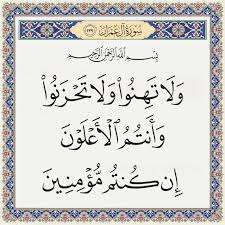 سُورَةُ آلِ عِمْرَانَ
بِسْمِ اللَّهِ الرَّحْمَٰنِ الرَّحِيمِ
وَلَا تَهِنُوا۟ وَلَا تَحْزَنُوا۟
وَأَنتُمُ ٱلْأَعْلَوْنَ
إِن كُنتُم مُّؤْمِنِينَ